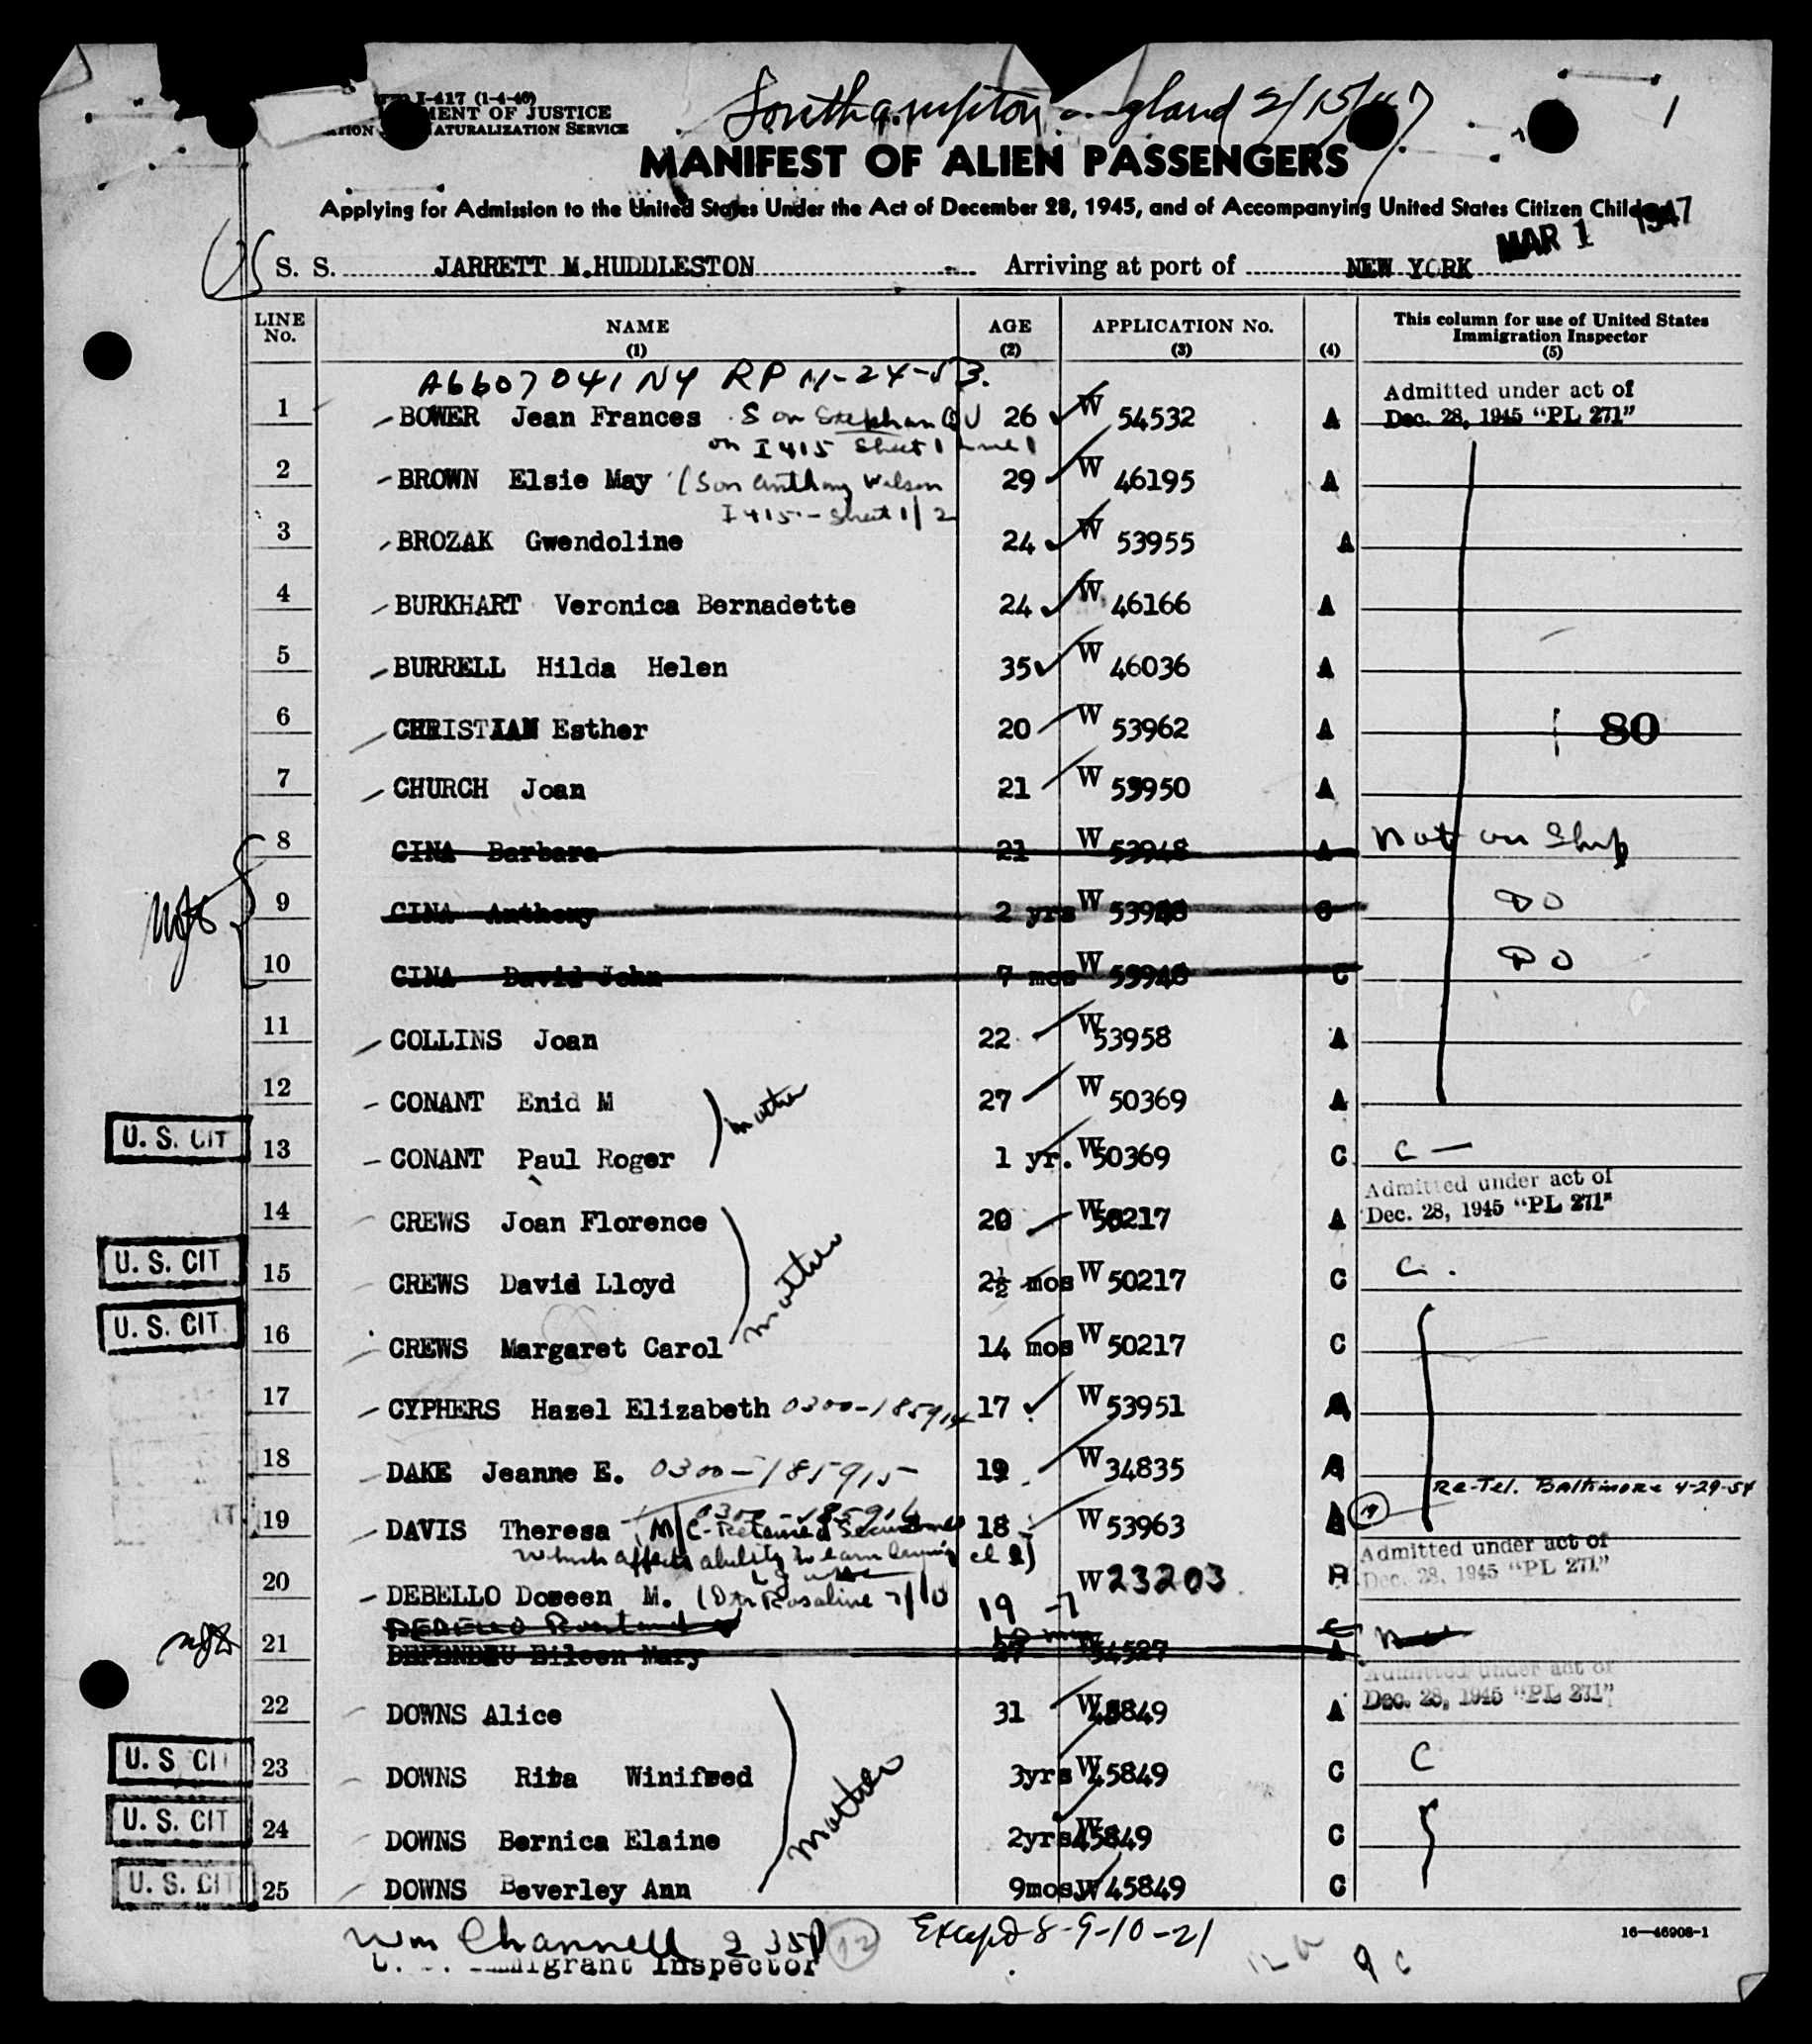 I-417 (1-4-46)
MENT OF JUSTICE
NATURALIZATION SERVICE
Southampton England 2/15/47
1
MANIFEST OF ALIEN PASSENGERS
Applying for Admission to the United States Under the Act of December 28, 1945, and of Accompanying United States Citizen Children
MAR 1 1947
S. S. JARRETT M.HUDDLESTON Arriving at port of NEW YORK
LINE No. NAME (1) AGE (2) APPLICATION No. (3) (4) This column for use of United States Immigration Inspector (5)
A6607041 NY RP 11-24-53.
1 BOWER Jean Frances Son Stephan 26 W 54532 A Admitted under act of Dec. 28, 1945 "PL 271"
on I 415 Sheet 1 Line 1
2 BROWN Elsie May (Son Anthony Wilson 29 W 46195 A
I 415 - Sheet 1/2
3 BROZAK Gwendoline 24 W 53955 A
4 BURKHART Veronica Bernadette 24 W 46166 A
5 BURRELL Hilda Helen 35 W 46036 A
6 CHRISTIAN Esther 20 W 53962 A 80
7 CHURCH Joan 21 W 53950 A
8 CINA Barbara 21 W 53948 A Not on Ship
9 CINA Anthony 2 yrs W 53948 C DO
10 CINA David John 7 mos W 53948 C DO
11 COLLINS Joan 22 W 53958 A
12 CONANT Enid M mother 27 W 50369 A
U. S. CIT 13 CONANT Paul Roger 1 yr. W 50369 C C —
14 CREWS Joan Florence 20 W 50217 A Admitted under act of Dec. 28, 1945 "PL 271"
U. S. CIT 15 CREWS David Lloyd mother 2½ mos W 50217 C C.
U. S. CIT 16 CREWS Margaret Carol 14 mos W 50217 C
17 CYPHERS Hazel Elizabeth 0300-185914 17 W 53951 A
18 DAKE Jeanne E. 0300-185915 19 W 34835 A
Re-Tel. Baltimore 4-29-54
0300-185916
19 DAVIS Theresa M/C - Retained 18 W 53963 A
which affects ability to earn living
Admitted under act of Dec. 28, 1945 "PL 271"
20 DEBELLO Doreen M. (Dtr Rosaline 7/10 19 W 23203
DEBELLO
21 Eileen Mary 27 W 54527 A
Admitted under act of Dec. 28, 1945 "PL 271"
22 DOWNS Alice 31 W 45849 A
U. S CIT 23 DOWNS Rita Winifred mother 3yrs W 45849 C C
U. S. CIT 24 DOWNS Bernica Elaine 2yrs W 45849 C
U. S. CIT 25 DOWNS Beverley Ann 9mos W 45849 C
Wm Channell 2 35 12 Except 8-9-10-21 16—46908-1
Immigrant Inspector 9 C